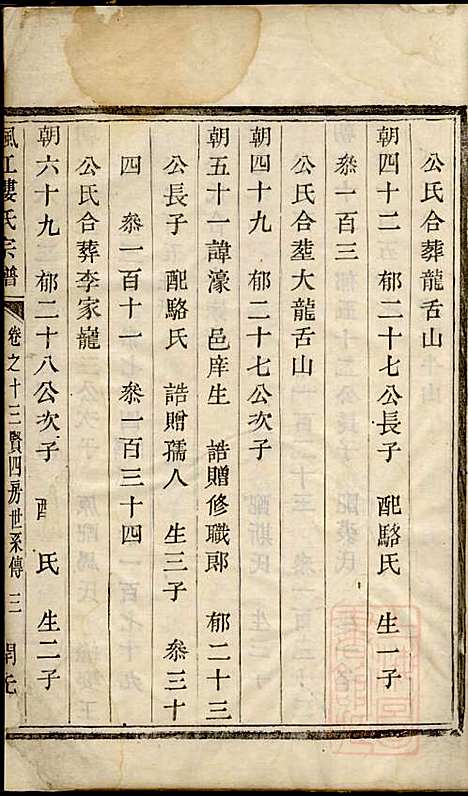 公氏合葬龍舌山
朝四十二　郁二十七公長子　配駱氏　生一子
叅一百三
公氏合塟大龍舌山
朝四十九　郁二十七公次子
朝五十一諱濠　邑庠生　誥贈修職郎　郁二十三
公長子　配駱氏　誥贈孺人　生三子　叅三十
四　叅一百十一　叅一百三十四
公氏合葬李家㡣
朝六十九　郁二十八公次子　配　氏　生二子
楓江婁氏宗譜　卷之十三賢四房世系傳　三